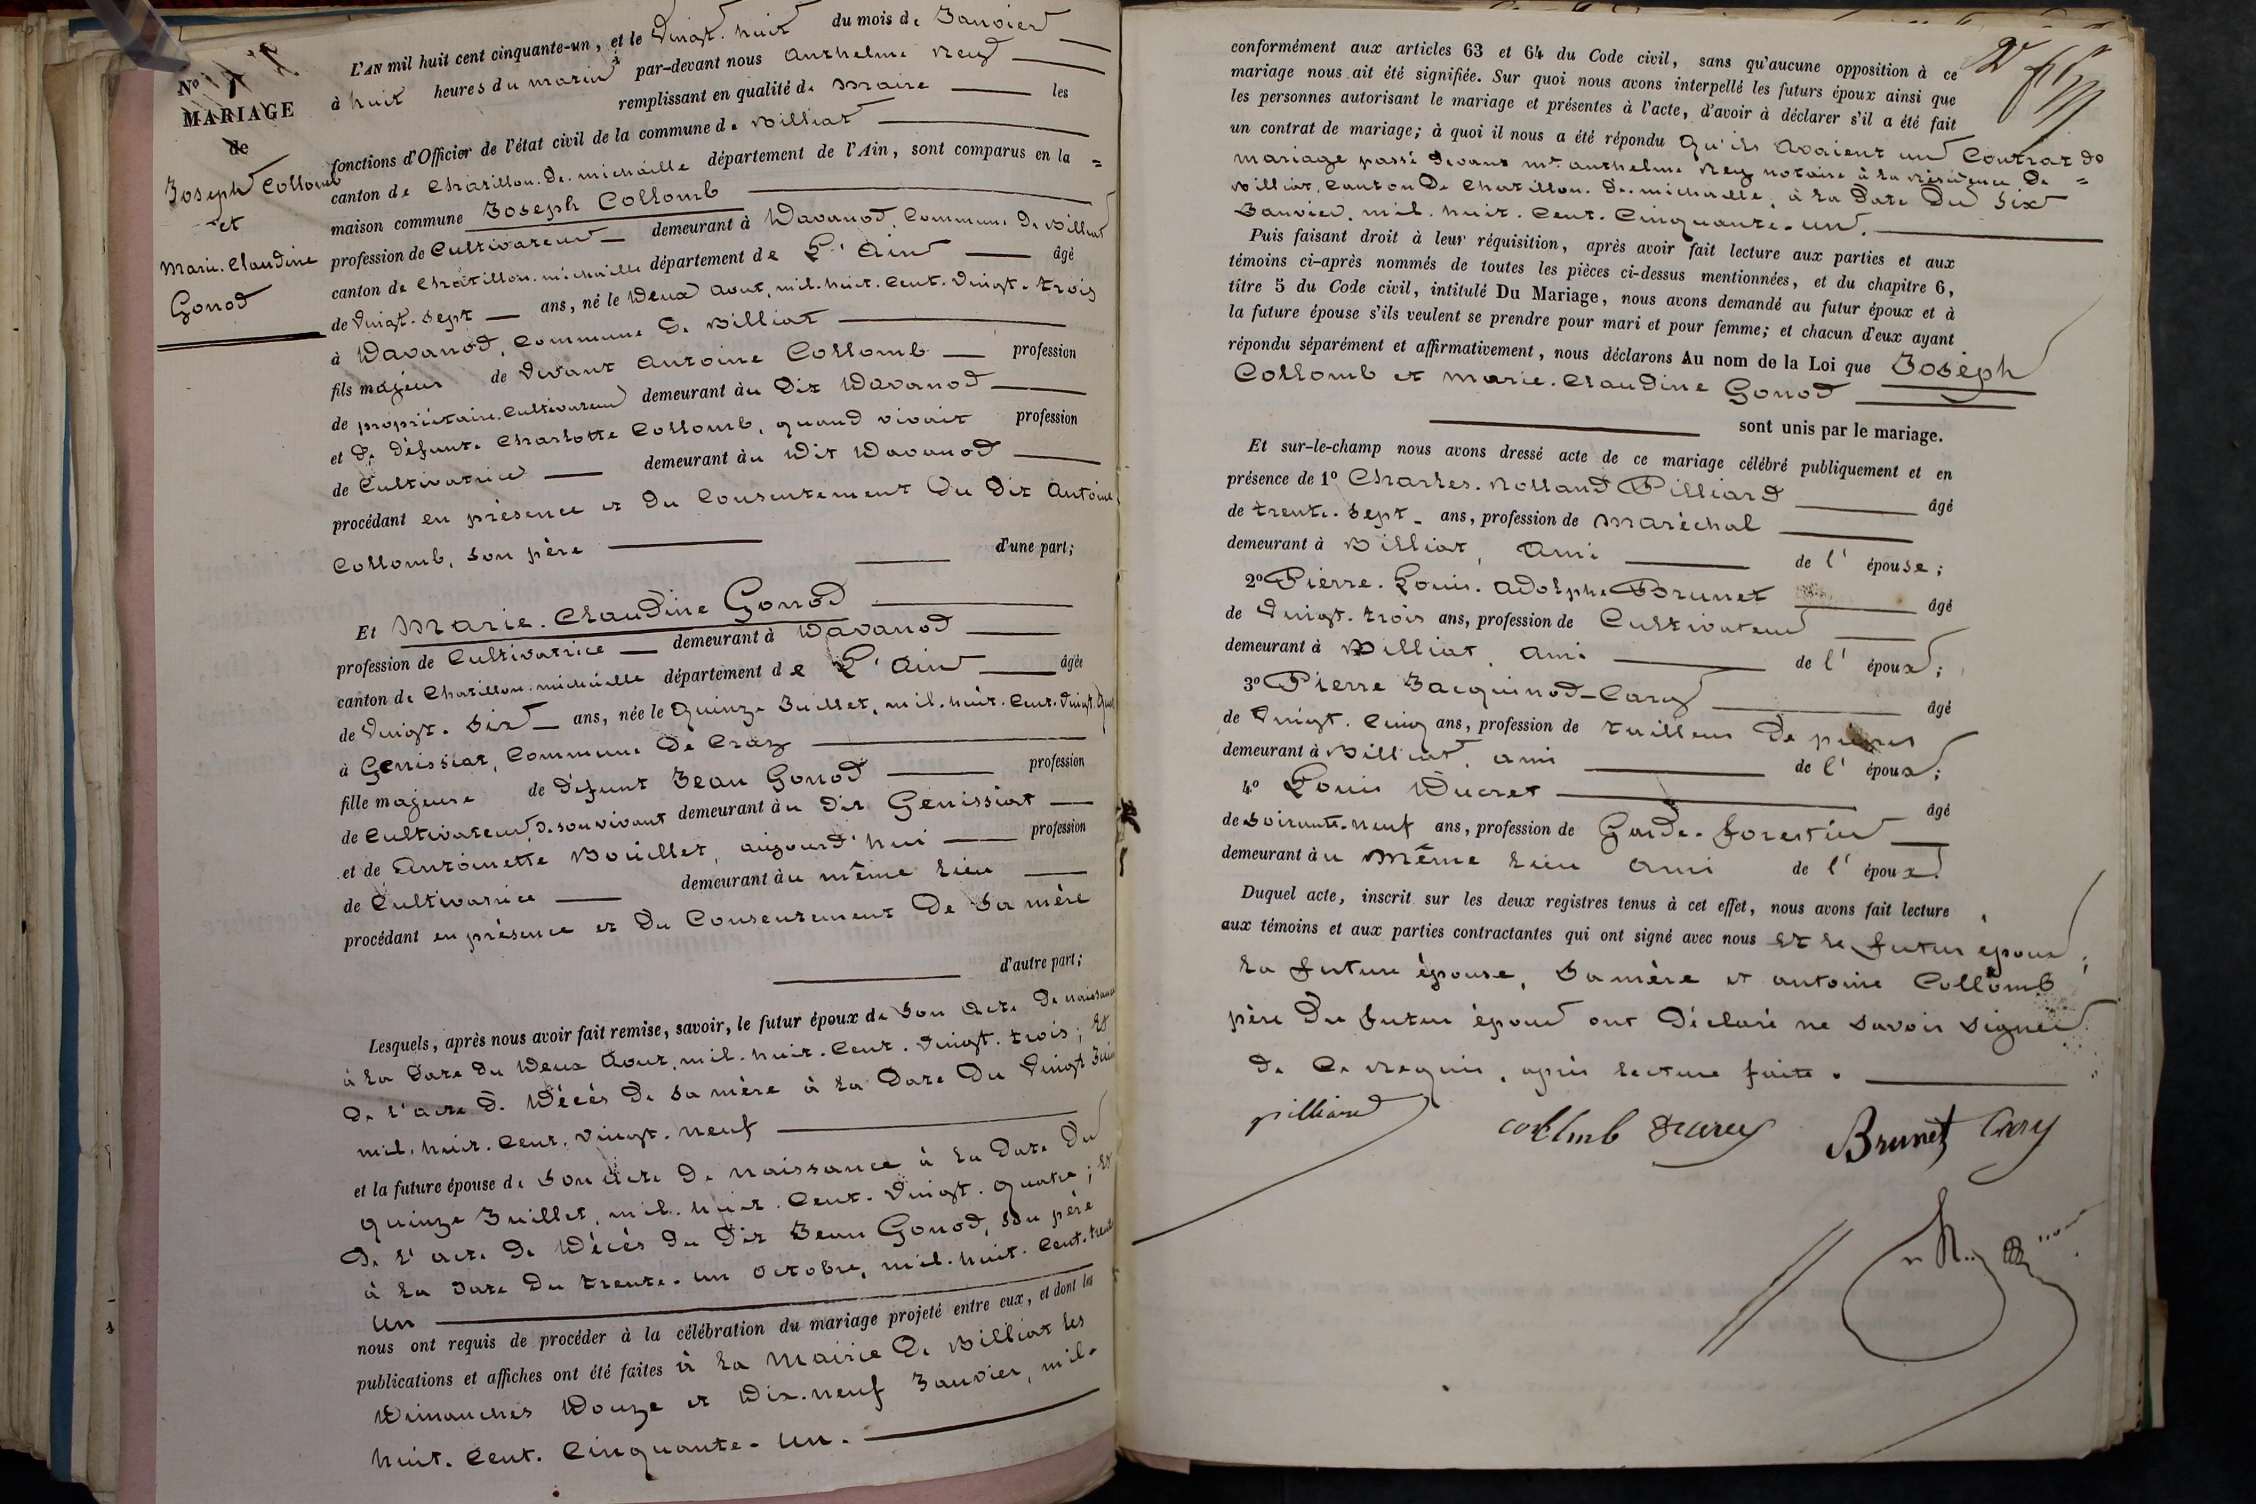 N° 1
MARIAGE
de
Joseph Collomb
et
Marie-Claudine
Gonod
L'AN mil huit cent cinquante-un, et le Vingt-huit du mois de Janvier
à huit heures du matin par-devant nous Anthelme Rey
remplissant en qualité de Maire les
fonctions d'Officier de l'état civil de la commune de Billiat
canton de Chatillon-De-michaille département de l'Ain, sont comparus en la
maison commune Joseph Collomb
profession de Cultivateur demeurant à Davanod, Commune De Billiat
canton de Châtillon-michaille département de L'Ain âgé
de Vingt-sept ans, né le Deux Aout, mil-huit-Cent-Vingt-trois
à Davanod, Commune De Billiat
fils majeur de Vivant Antoine Collomb profession
de propriétaire-Cultivateur demeurant àu Dit Davanod
et De défunte Charlotte Collomb, quand vivait profession
de Cultivatrice demeurant àu Dit Davanod
procédant en présence et Du Consentement Du Dit Antoine
Collomb, son père d'une part;
Et Marie-Claudine Gonod
profession de Cultivatrice demeurant à Davanod
canton de Chatillon-michaille département de L'Ain âgée
de Vingt-Six ans, née le Quinze Juillet, mil-huit-Cent-Vingt-Quat
à Génissiat, Commune De Craz
fille majeure de Défunt Jean Gonod profession
de Cultivateur, De son vivant demeurant àu Dit Génissiat
et de Antoinette Bouillet, aujourd'hui profession
de Cultivatrice demeurant àu même lieu
procédant en présence et Du Consentement De Sa mère
d'autre part;
Lesquels, après nous avoir fait remise, savoir, le futur époux de Son Acte De naissance
à la Date du Deux Aout, mil-huit-Cent-Vingt-trois; Et
De l'acte De Décés De Sa mère à la Date Du Vingt Juin
mil-huit-Cent-Vingt-neuf
et la future épouse de Son Acte De naissance à la Date Du
quinze Juillet, mil-huit-Cent-Vingt-quatre; Et
De l'acte De Décés Du Dit Jean Gonod, Son père
à la Date Du trente-un Octobre, mil-huit-Cent-trente
Un
nous ont requis de procéder à la célébration du mariage projeté entre eux, et dont les
publications et affiches ont été faites à la Mairie De Billiat les
Dimanches Douze et Dix-neuf Janvier, mil-
huit-Cent-Cinquante-Un.
conformément aux articles 63 et 64 du Code civil, sans qu'aucune opposition à ce
mariage nous ait été signifiée. Sur quoi nous avons interpellé les futurs époux ainsi que
les personnes autorisant le mariage et présentes à l'acte, d'avoir à déclarer s'il a été fait
un contrat de mariage; à quoi il nous a été répondu Qu'ils Avaient un Contrat De
Mariage passé Devant Mtre Anthelme Rey notaire à la résidence De
Billiat, Canton De Chatillon-De-michaille, à la Date Du Six
Janvier, mil-huit-Cent-Cinquante-Un.
Puis faisant droit à leur réquisition, après avoir fait lecture aux parties et aux
témoins ci-après nommés de toutes les pièces ci-dessus mentionnées, et du chapitre 6,
titre 5 du Code civil, intitulé Du Mariage, nous avons demandé au futur époux et à
la future épouse s'ils veulent se prendre pour mari et pour femme; et chacun d'eux ayant
répondu séparément et affirmativement, nous déclarons Au nom de la Loi que Joseph
Collomb et Marie-Claudine Gonod
sont unis par le mariage.
Et sur-le-champ nous avons dressé acte de ce mariage célébré publiquement et en
présence de 1° Charles-Rolland Pilliard âgé
de trente-sept ans, profession de Maréchal
demeurant à Billiat, Ami de l'épouse;
2° Pierre-Louis-Adolphe Brunet âgé
de Vingt-trois ans, profession de Cultivateur
demeurant à Billiat, Ami de l'époux;
3° Pierre Jacquinod-Carry âgé
de Vingt-Cinq ans, profession de tailleur De pierres
demeurant à Billiat, ami de l'époux;
4° Louis Ducret âgé
de Soixante-neuf ans, profession de Garde-forestier
demeurant àu Même lieu Ami de l'époux.
Duquel acte, inscrit sur les deux registres tenus à cet effet, nous avons fait lecture
aux témoins et aux parties contractantes qui ont signé avec nous Et le futur époux;
la future épouse, Sa mère et antoine Collomb
père Du futur époux ont Déclaré ne Savoir Signer
De Ce requis, après lecture faite.
pilliard collmb Ducret Brunet Carry